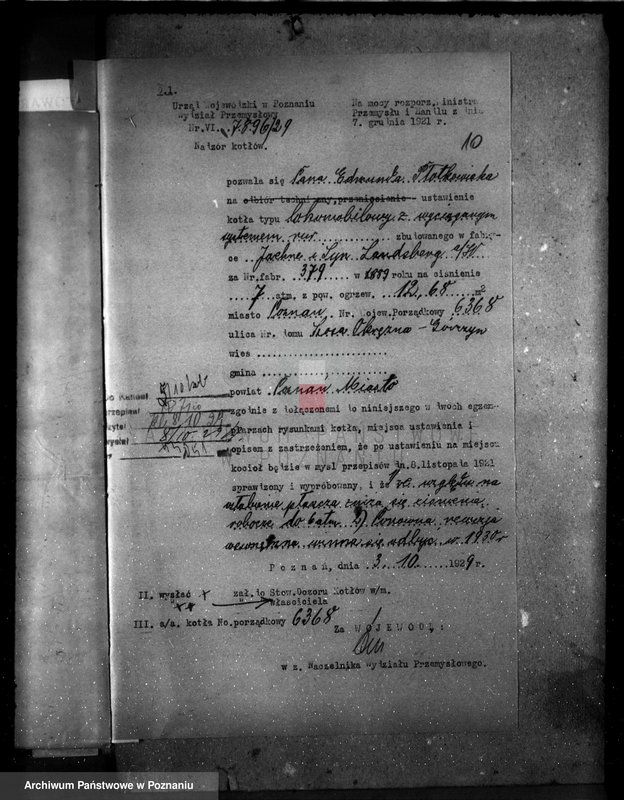 I.
Urząd Wojewódzki w Poznaniu
Wydział Przemysłowy
Nr.VI. 7896/29
Nadzór kotłów.
Na mocy rozporz. Ministra
Przemysłu i Handlu z dnia
7. grudnia 1921 r.
10
pozwala się Pana Edmunda Płotkowiaka
na odbiór techniczny, przeniesienie ustawienie
kotła typu lokomobilowy z wyciąganym
systemem rur zbudowanego w fabry-
ce Jaehne i Syn Landsberg a/W.
za Nr.fabr. 379 w 1889 roku na ciśnienie
7 atm. z pow. ogrzew. 12,68 m2
miasto Poznań, Nr. Wojew.Porządkowy 6368
ulica Nr. domu Szosa Okrężna - Górczyn
wieś
gmina
powiat Poznań Miasto
zgodnie z dołączonemi do niniejszego w dwóch egzem-
plarzach rysunkami kotła, miejsca ustawienia i
opisem z zastrzeżeniem, że po ustawieniu na miejscu
kocioł będzie w myśl przepisów dn.8.listopada 1921
sprawdzony i wypróbowany, i że 1) ze względu na
osłabienie płaszcza zniża się ciśnienie
robocze do 6 atm. 2) Ponowna rewizja
wewnętrzna winna się odbyć w 1930 r
Poznań, dnia 3. 10. 1929 r.
II. wysłać zał. do Stow.Dozoru Kotłów w/m.
właściciela
III. a/a. kotła No.porządkowy 6368
Za WOJEWODĘ:
w z. Naczelnika Wydziału Przemysłowego.
Archiwum Państwowe w Poznaniu